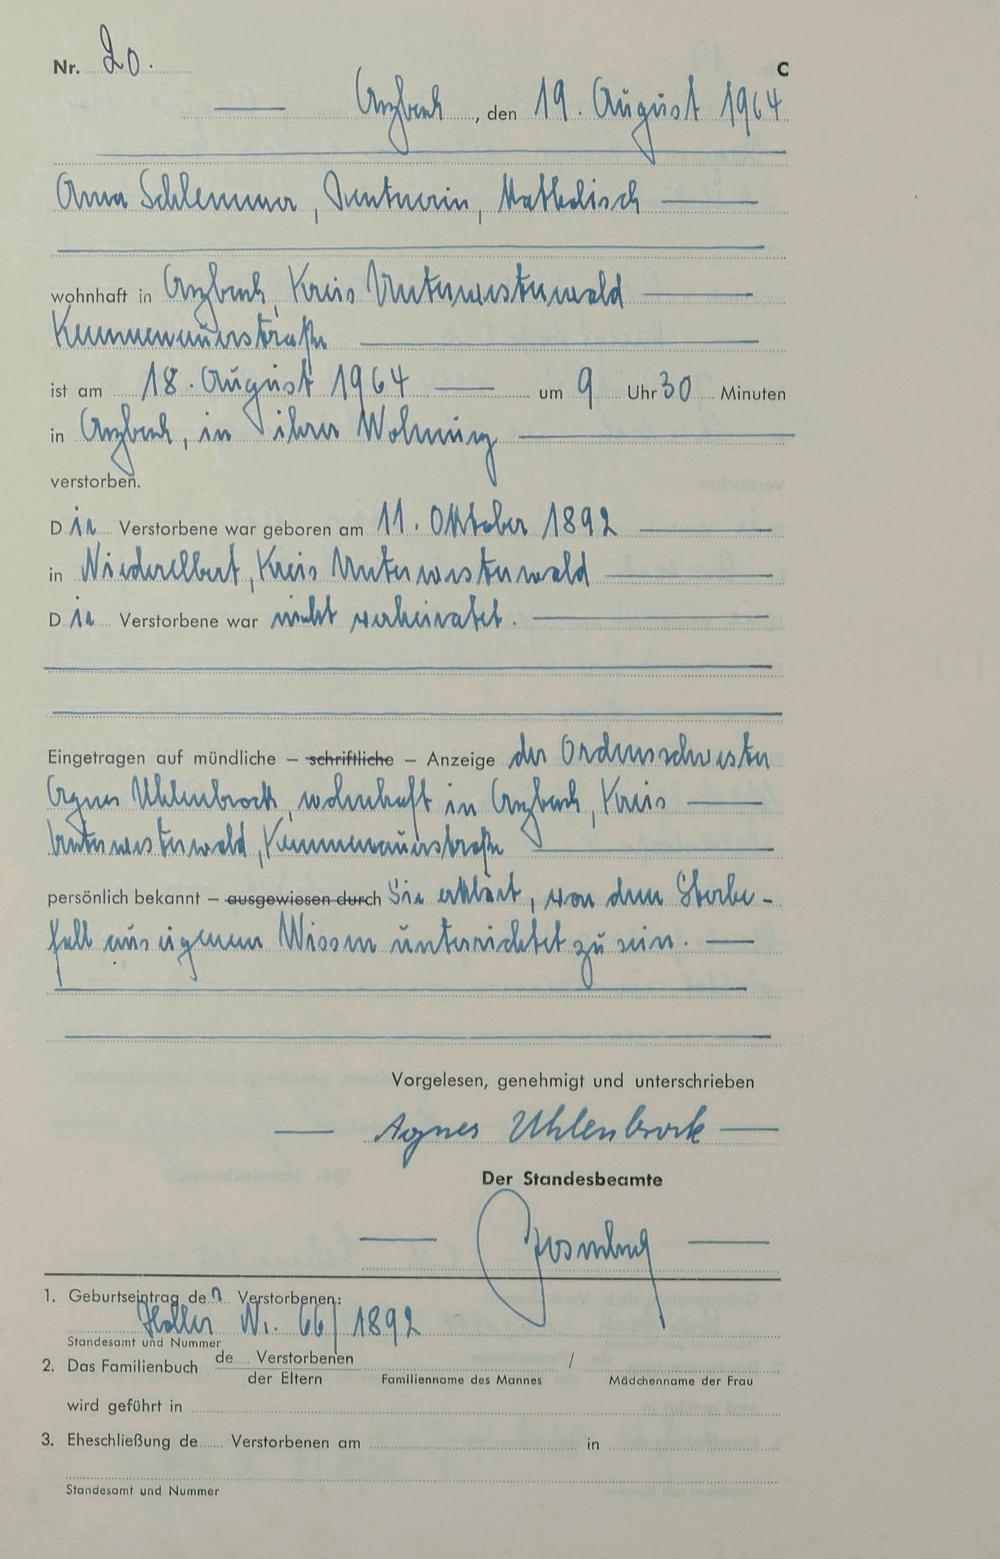 Nr. 20. C
Arzbach, den 19. August 1964
Anna Schlemmer, Rentnerin, Katholisch
wohnhaft in Arzbach, Kreis Unterwesterwald
Kemmenauerstraße
ist am 18. August 1964 um 9 Uhr 30 Minuten
in Arzbach, in ihrer Wohnung
verstorben.
Die Verstorbene war geboren am 11. Oktober 1892
in Niederelbert, Kreis Unterwesterwald
Die Verstorbene war nicht verheiratet.
Eingetragen auf mündliche – schriftliche – Anzeige der Ordensschwester
Agnes Uhlenbrock, wohnhaft in Arzbach, Kreis
Unterwesterwald, Kemmenauerstraße
persönlich bekannt – ausgewiesen durch Sie erklärt, von dem Sterbe-
fall aus eigenem Wissen unterrichtet zu sein.
Vorgelesen, genehmigt und unterschrieben
Agnes Uhlenbrock
Der Standesbeamte
1. Geburtseintrag der Verstorbenen:
Nr. 66/1892
Standesamt und Nummer
2. Das Familienbuch de Verstorbenen /
der Eltern Familienname des Mannes Mädchenname der Frau
wird geführt in
3. Eheschließung de Verstorbenen am in
Standesamt und Nummer